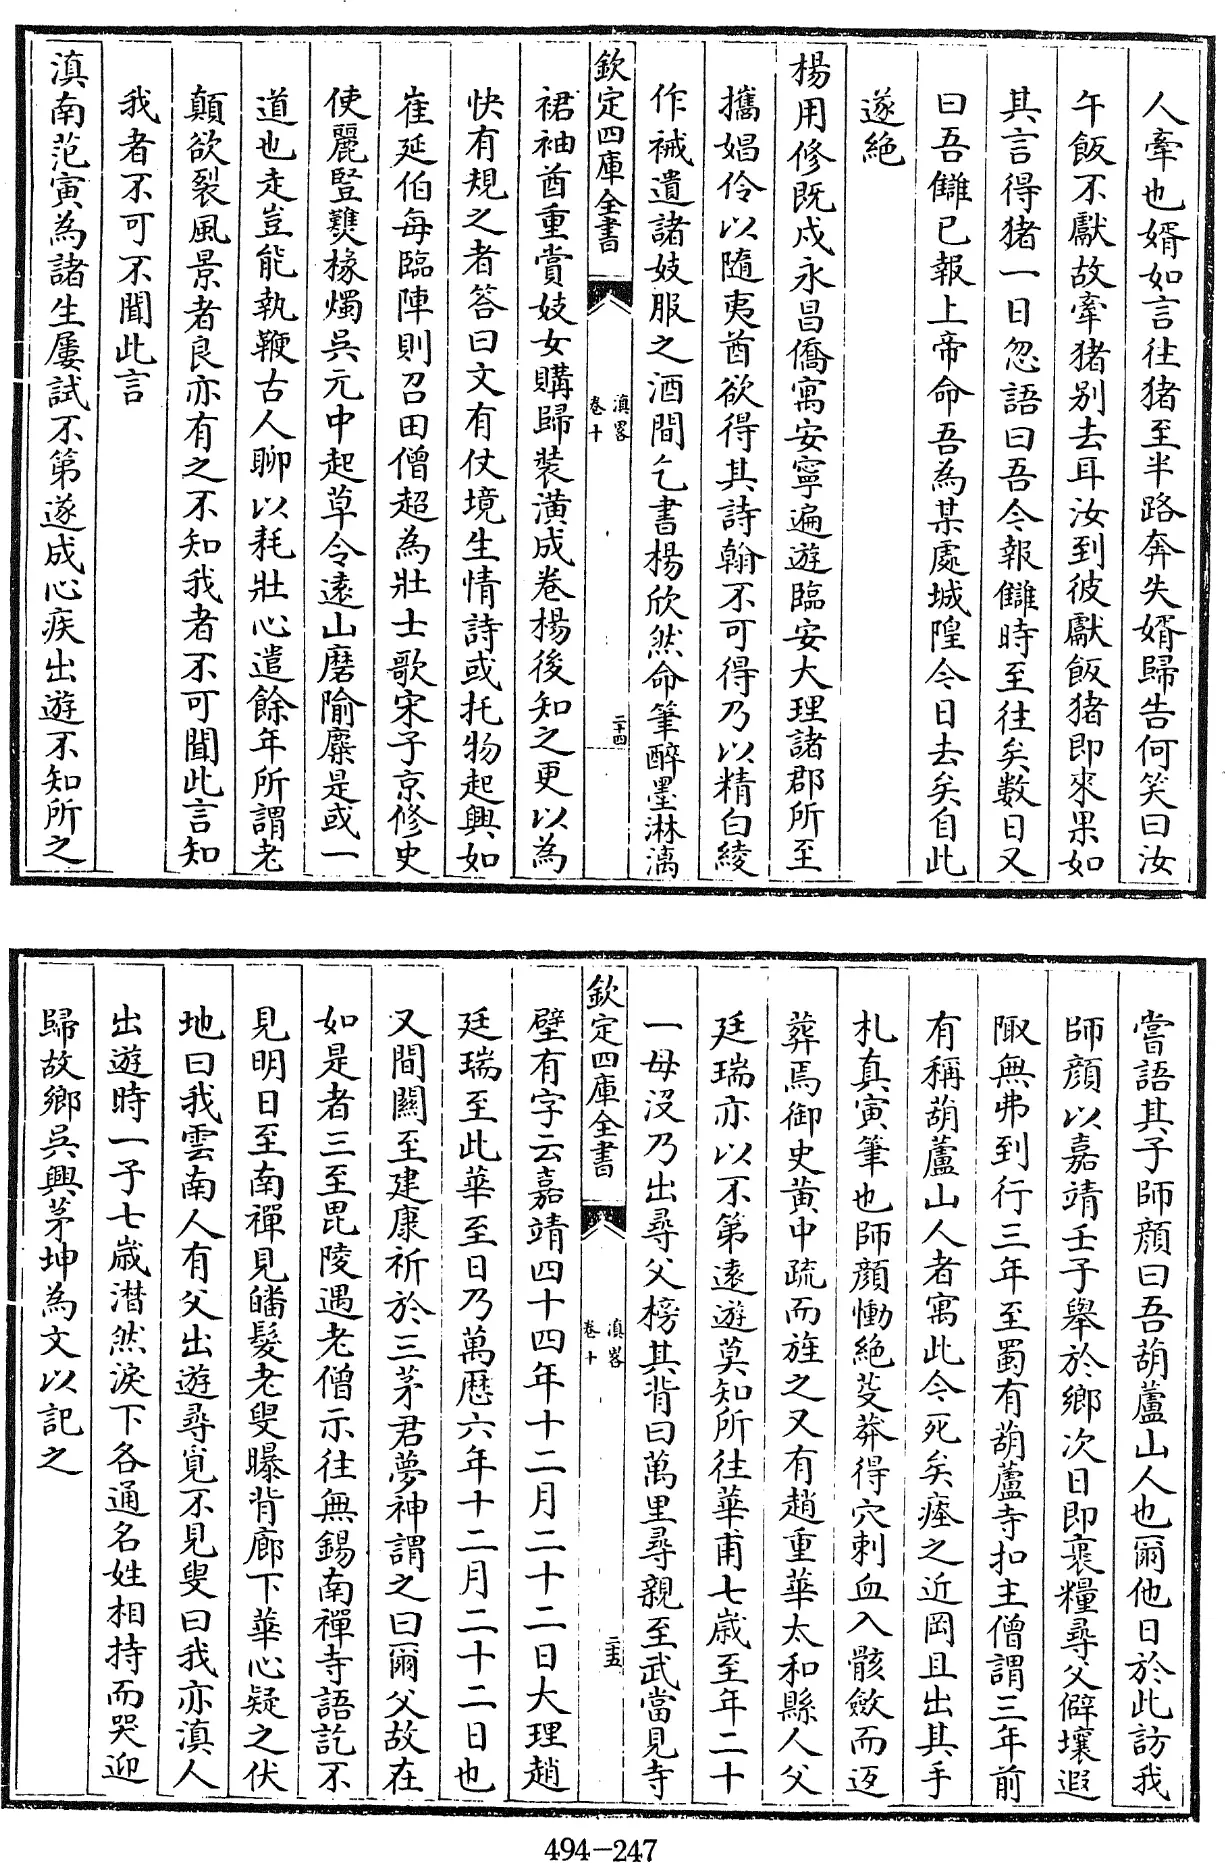 人牽也婿如言往猪至半路奔失婿歸告何笑曰汝
午飯不獻故牽猪别去耳汝到彼獻飯猪即來果如
其言得猪一日忽語曰吾今報讎時至往矣數日又
曰吾讎已報上帝命吾為某處城隍今日去矣自此
遂絶
楊用修既戍永昌僑寓安寧遍遊臨安大理諸郡所至
攜娼伶以隨夷酋欲得其詩翰不可得乃以精白綾
作裓遺諸妓服之酒間乞書楊欣然命筆醉墨淋漓
欽定四庫全書
滇畧
卷十
二十四
裙袖酋重賞妓女購歸裝潢成卷楊後知之更以為
快有規之者答曰文有仗境生情詩或托物起興如
崔延伯每臨陣則召田僧超為壯士歌宋子京修史
使麗豎㸑椽燭吳元中起草令逺山磨隃糜是或一
道也走豈能執鞭古人聊以耗壯心遣餘年所謂老
顛欲裂風景者良亦有之不知我者不可聞此言知
我者不可不聞此言
滇南范寅為諸生屢試不第遂成心疾出遊不知所之
嘗語其子師顔曰吾葫蘆山人也爾他日於此訪我
師顔以嘉靖壬子舉於鄉次日即裹糧尋父僻壤遐
陬無弗到行三年至蜀有葫蘆寺扣主僧謂三年前
有稱葫蘆山人者寓此今死矣瘞之近岡且出其手
札真寅筆也師顔慟絶芟莽得穴刺血入骸斂而返
葬焉御史黄中疏而旌之又有趙重華太和縣人父
廷瑞亦以不第逺遊莫知所往華甫七歲至年二十
一母没乃出尋父榜其背曰萬里尋親至武當見寺
欽定四庫全書
滇畧
卷十
二十五
壁有字云嘉靖四十四年十二月二十二日大理趙
廷瑞至此華至日乃萬歴六年十二月二十二日也
又間關至建康祈於三茅君夢神謂之曰爾父故在
如是者三至毘陵遇老僧示往無錫南禪寺語訖不
見明日至南禪見皤髮老叟曝背廊下華心疑之伏
地曰我雲南人有父出遊尋覓不見叟曰我亦滇人
出遊時一子七歲潸然淚下各通名姓相持而哭迎
歸故鄉吳興茅坤為文以記之
494-247